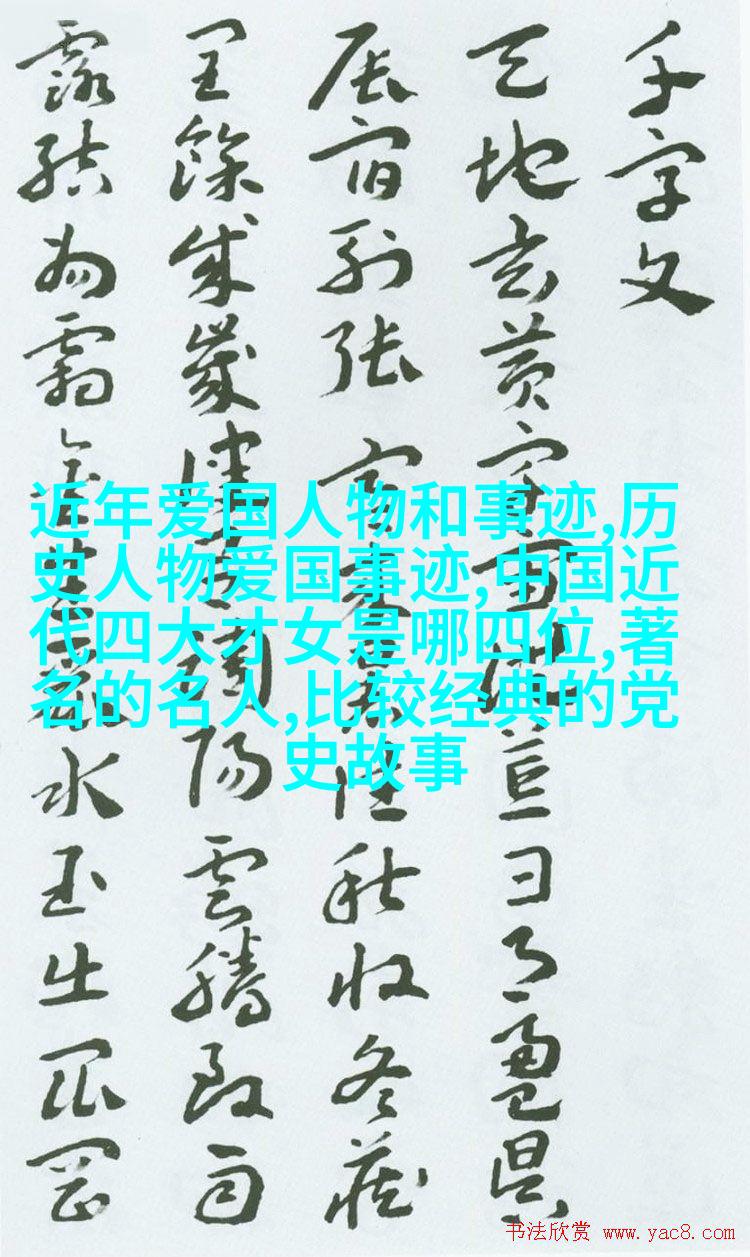 千字文
天地玄黃宇宙洪荒日月盈昃
辰宿列張寒來暑往秋收冬藏
閏餘成歲律呂調陽雲騰致雨
露結為霜金生麗水玉出崑岡
近年爱国人物和事迹,历
史人物爱国事迹,中国近
代四大才女是哪四位,著
名的名人,比较经典的党
史故事
书法欣赏 www.yac8.com